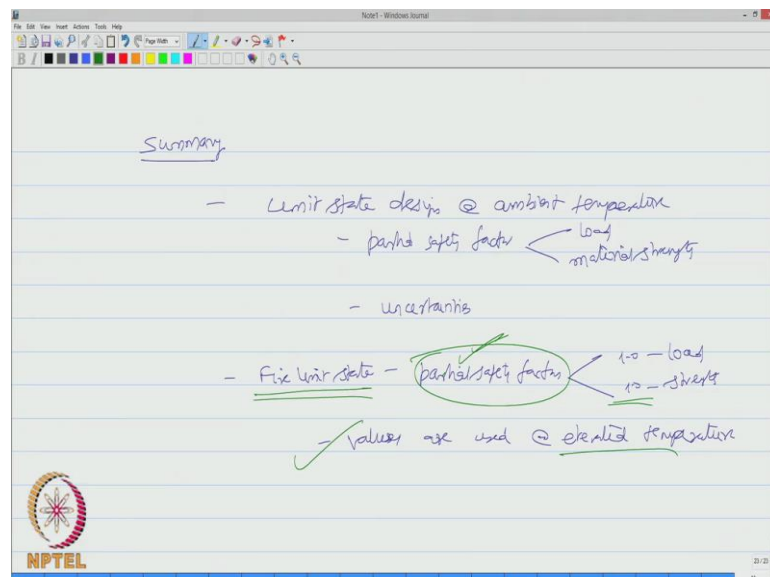 Note1 - Windows Journal
File Edit View Insert Actions Tools Help
Page Width
B I
Summary
- Limit state design @ ambient temperature
- partial safety factor
load
material strength
- uncertainties
- Fire limit state - partial safety factor
1.0 - load
1.0 - strength
- values are used @ elevated temperature
NPTEL
23/23